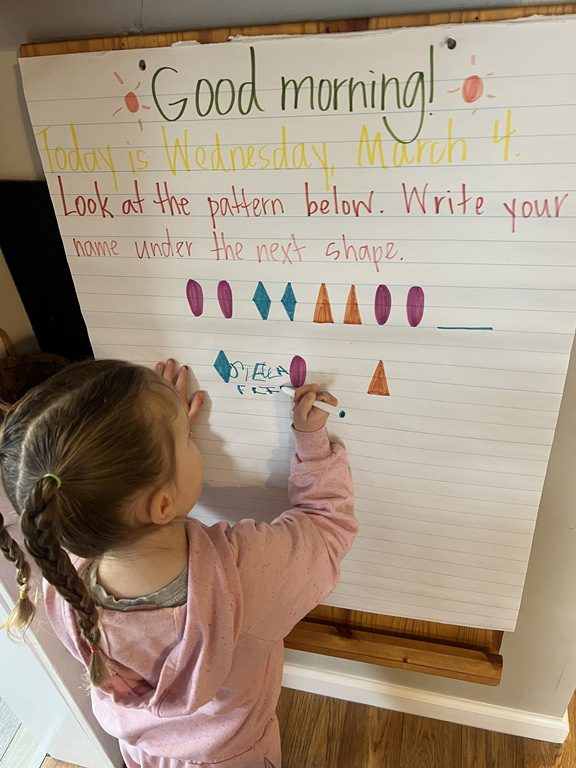 Good morning!
Today is Wednesday, March 4.
Look at the pattern below. Write your
name under the next shape.
STELLA